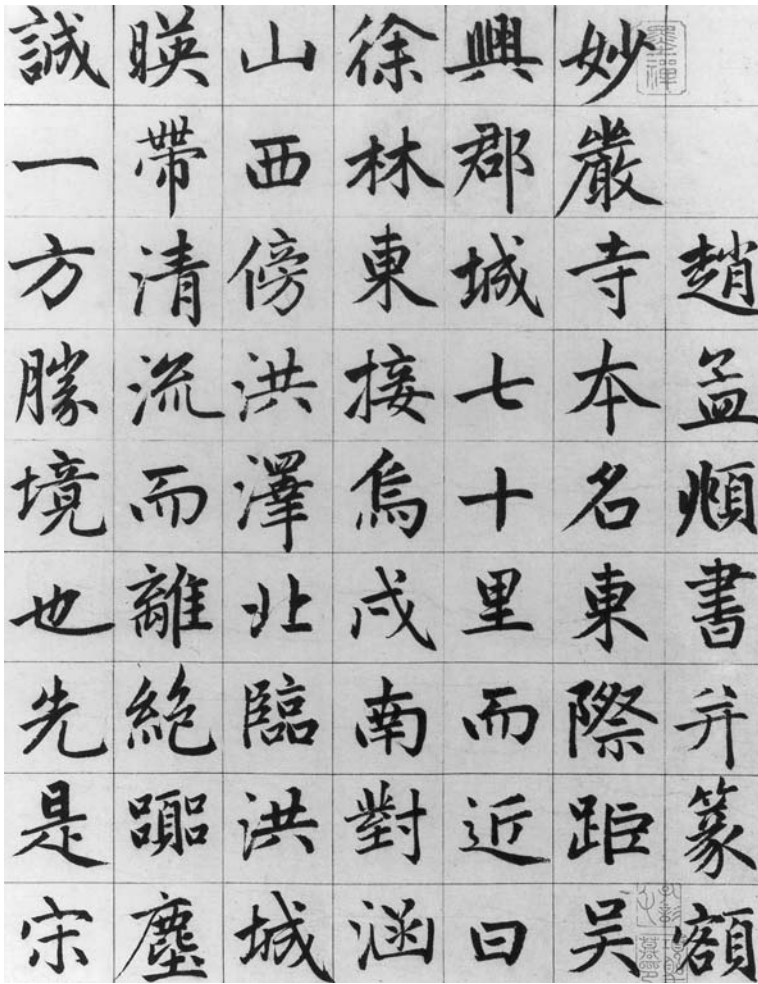 墨禪
趙孟頫書并篆額
妙嚴寺本名東際距吴
興郡城七十里而近曰
徐林東接烏戍南對涵
山西傍洪澤北臨洪城
暎帶清流而離絶囂塵
誠一方勝境也先是宋